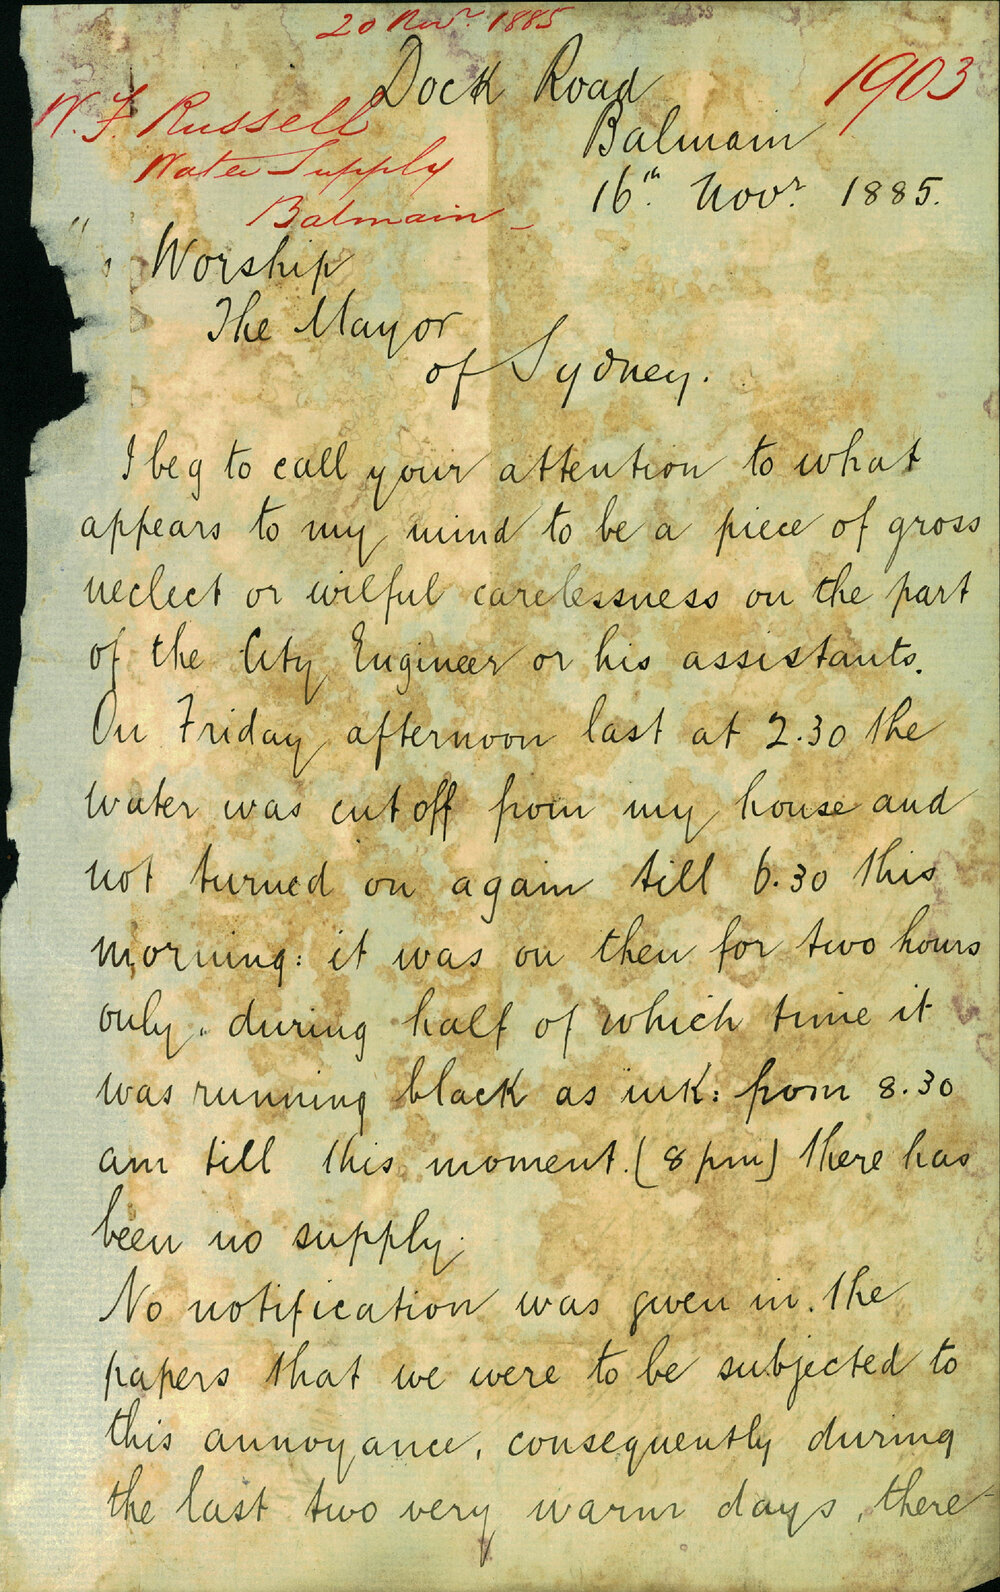 20 Novr. 1885
Dock Road
1903
W. F. Russell
Balmain
Water Supply
16th. Novr. 1885.
Balmain
Worship
The Mayor
of Sydney.
I beg to call your attention to what
appears to my mind to be a piece of gross
neclect or wilful carelessness on the part
of the City Engineer or his assistants.
On Friday afternoon last at 2.30 the
water was cut off from my house and
not turned on again till 6.30 this
morning: it was on then for two hours
only. during half of which time it
was running black as ink: from 8.30
am till this moment. (8 pm) there has
been no supply.
No notification was given in. the
papers that we were to be subjected to
this annoyance, consequently during
the last two very warm days, there